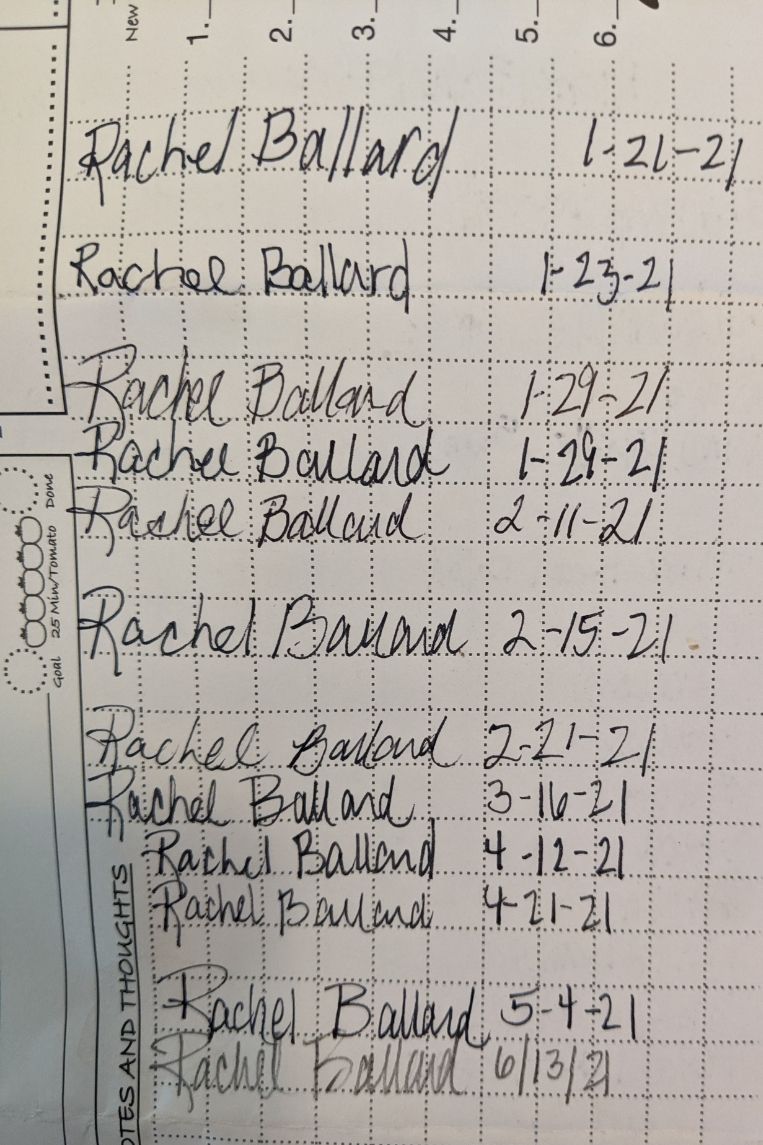 New
1.
2.
3.
4.
5.
6.
Rachel Ballard 1-21-21
Rachel Ballard 1-23-21
Rachel Ballard 1-29-21
Rachel Ballard 1-29-21
Rachel Ballard 2-11-21
Rachel Ballard 2-15-21
Rachel Ballard 2-21-21
Rachel Ballard 3-16-21
Rachel Ballard 4-12-21
Rachel Ballard 4-21-21
Rachel Ballard 5-4-21
Rachel Ballard 6/13/21
Goal 25 Min/Tomato Done
OTES AND THOUGHTS